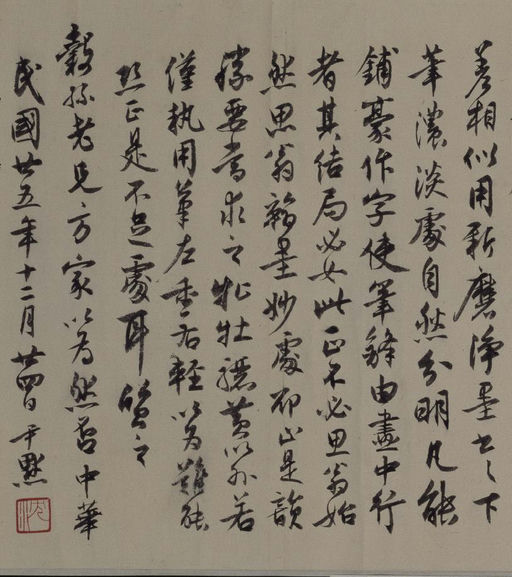 差相似用新磨淨墨書之下
筆濃淡處自然分明凡能
鋪豪作字使筆鋒由畫中行
者其結局必如此正不必思翁始
然思翁翰墨妙處却正是韻
勝要當求之牝牡驪黃以外若
僅執用筆左重右輕以為難能
恐正是不足處耳質之
穀孫老兄方家以為然否中華
民國廿五年十二月廿四日尹默
沈